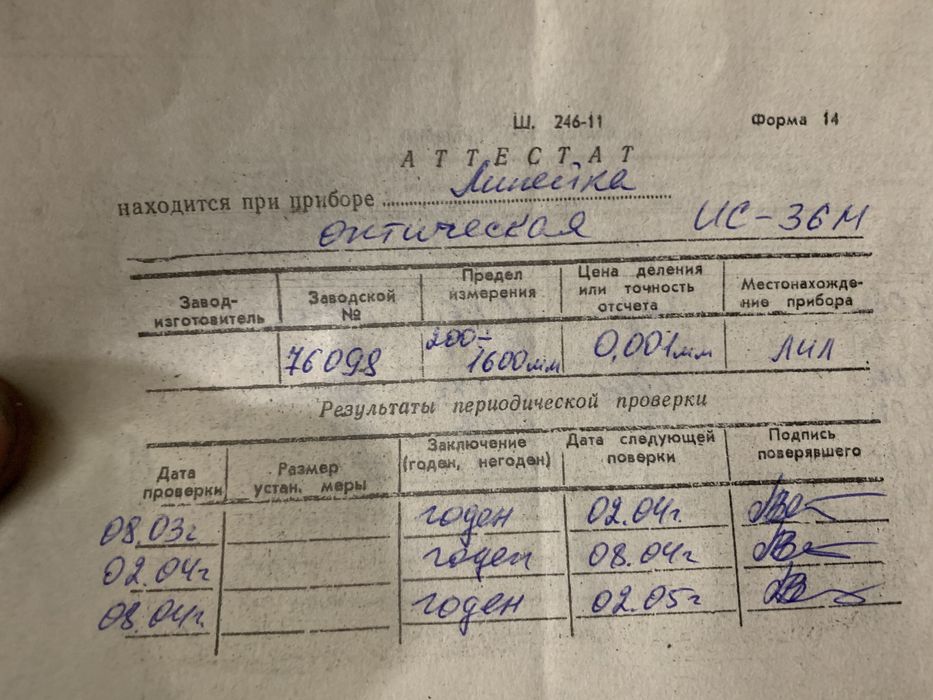 Ш. 246-11 Форма 14
АТТЕСТАТ
находится при приборе Линейка
оптическая ИС-36М
Завод-изготовитель Заводской № Предел измерения Цена деления или точность отсчета Местонахожде-ние прибора
76098 200÷1600мм 0,001мм ЛИЛ
Результаты периодической проверки
Дата проверки Размер устан. меры Заключение (годен, негоден) Дата следующей поверки Подпись поверявшего
08.03г годен 02.04г.
02.04г годен 08.04г
08.04г. годен 02.05г